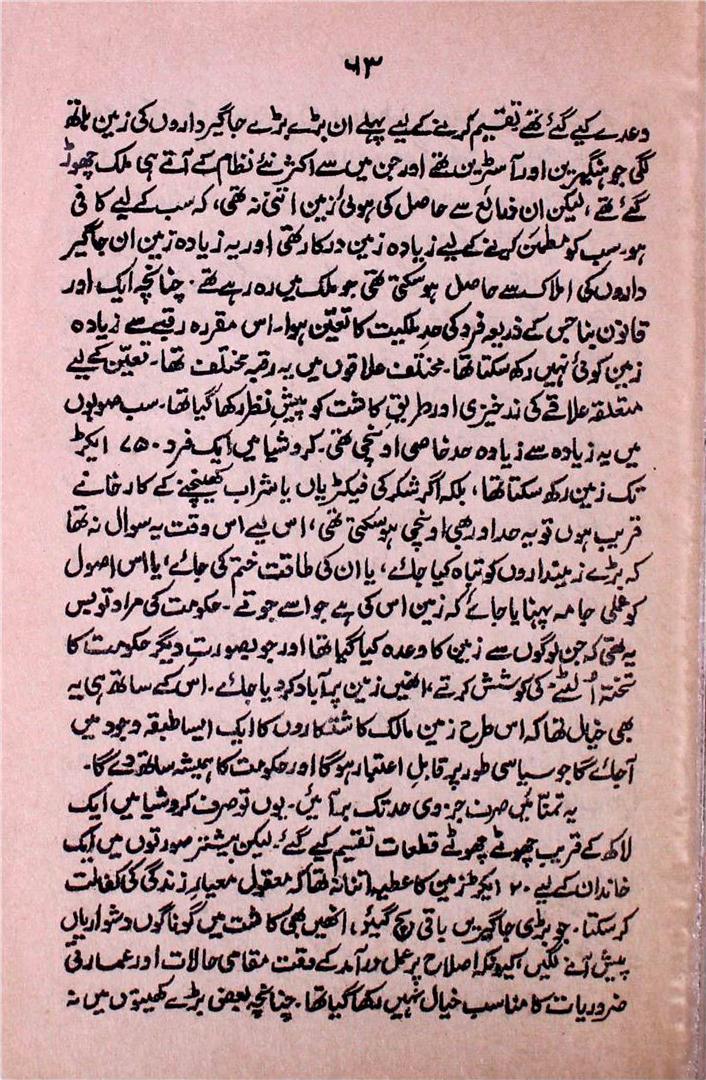 ۶۳
وعدے کیے گئے تھے تقسیم کرنے کے لیے پہلے ان بڑے بڑے جاگیرداروں کی زمین ہاتھ
لگی جو ہنگیرین اور آسٹرین تھے اور جن میں سے اکثر نئے نظام کے آتے ہی ملک چھوڑ
گئے تھے، لیکن ان ذرائع سے حاصل کی ہوئی زمین اتنی نہ تھی، کہ سب کے لیے کافی
ہو، سب کو مطمئن کرنے کے لیے زیادہ زمین درکار تھی اور یہ زیادہ زمین ان جاگیر
داروں کی املاک سے حاصل ہو سکتی تھی جو ملک میں رہ رہے تھے۔ چنانچہ ایک اور
قانون بنا جس کے ذریعہ فرد کی حدِ ملکیت کا تعیّن ہوا۔ اس مقررہ رقبے سے زیادہ
زمین کوئی نہیں رکھ سکتا تھا۔ مختلف علاقوں میں یہ رقبہ مختلف تھا۔ تعیّن کے لیے
متعلقہ علاقے کی زرخیزی اور طریقِ کاشت کو پیشِ نظر رکھا گیا تھا۔ سب صوبوں
میں یہ زیادہ سے زیادہ حد خاصی اونچی تھی۔ کروشیا میں ایک فرد ۷۵۰ ایکڑ
تک زمین رکھ سکتا تھا، بلکہ اگر شکر کی فیکٹریاں یا شراب کھینچنے کے کارخانے
قریب ہوں تو یہ حد اور بھی اونچی ہو سکتی تھی، اس لیے اس وقت یہ سوال نہ تھا
کہ بڑے زمینداروں کو تباہ کیا جائے، یا ان کی طاقت ختم کی جائے، یا اس اصول
کو عملی جامہ پہنایا جائے کہ زمین اس کی ہے جو اسے جوتے۔ حکومت کی مراد تو بس
یہ تھی کہ جن لوگوں سے زمین کا وعدہ کیا گیا تھا اور جو بصورتِ دیگر حکومت کا
تختہ اُلٹنے کی کوشش کرتے، انھیں زمین پر آباد کر دیا جائے۔ اس کے ساتھ ہی یہ
بھی خیال تھا کہ اس طرح زمین مالک کاشتکاروں کا ایک ایسا طبقہ وجود میں
آجائے گا جو سیاسی طور پر قابلِ اعتبار ہوگا اور حکومت کا ہمیشہ ساتھ دے گا۔
یہ تمنائیں صرف جزوی حد تک بر آئیں۔ یوں تو صرف کروشیا میں ایک
لاکھ کے قریب چھوٹے چھوٹے قطعات تقسیم کیے گئے۔ لیکن بیشتر صورتوں میں ایک
خاندان کے لیے ۲۰ ایکڑ زمین کا عطیہ اتنا نہ تھا کہ معقول معیارِ زندگی کی کفالت
کر سکتا۔ جو بڑی جاگیریں باقی بچ گئیں، انھیں بھی کاشت میں گوناگوں دشواریاں
پیش آنے لگیں، کیونکہ اصلاح پر عمل درآمد کے وقت مقامی حالات اور عمارتی
ضروریات کا مناسب خیال نہیں رکھا گیا تھا۔ چنانچہ بعض بڑے کھیتوں میں نہ